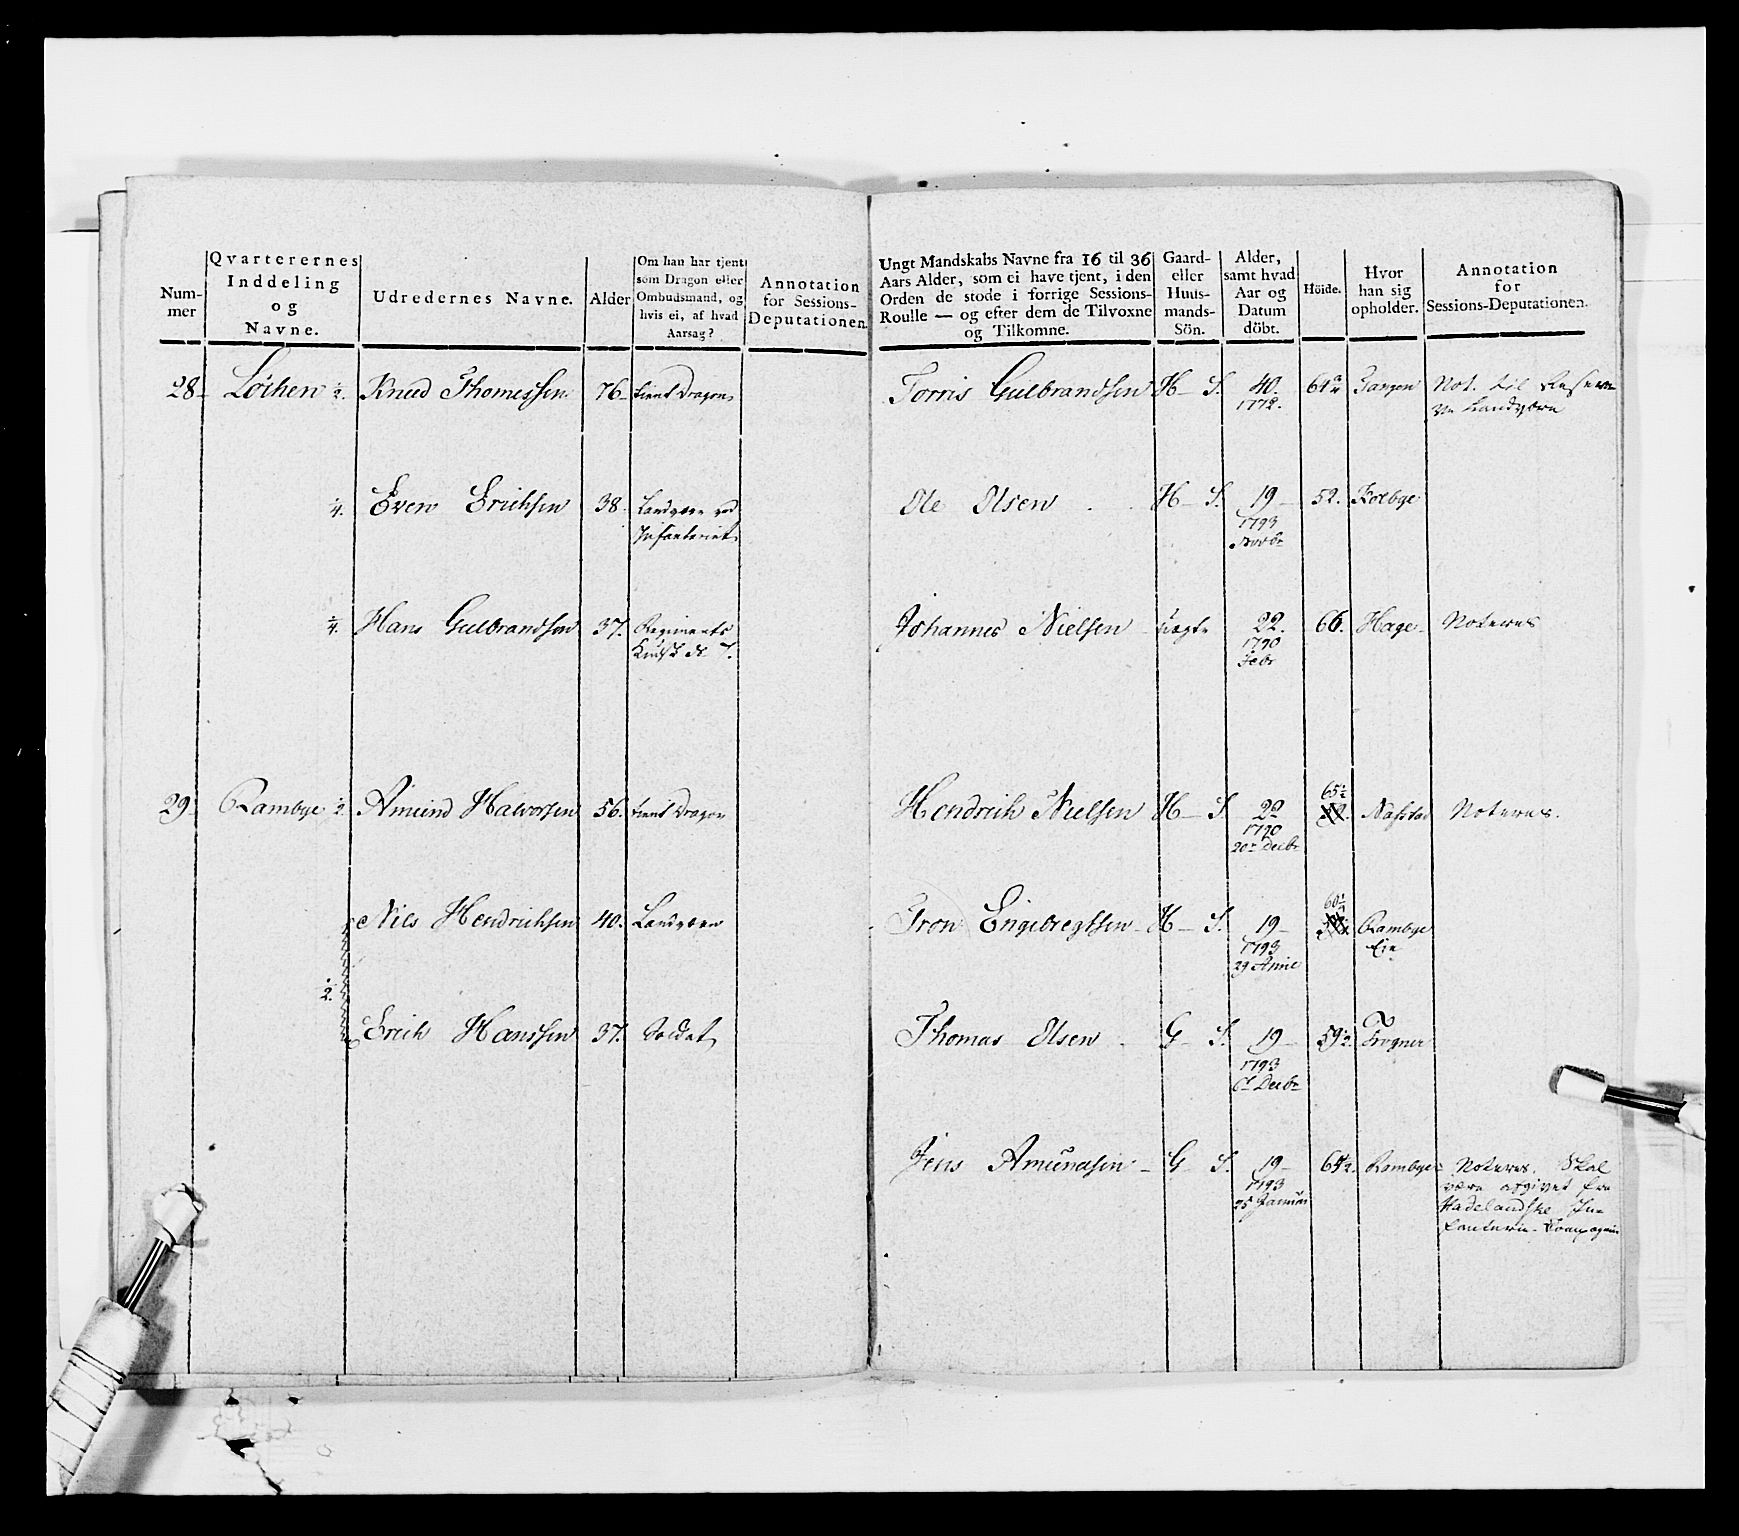 Num-
mer
Qvarterernes
Inddeling
og
Navne.
Udredernes Navne.
Alder
Om han har tjent
som Dragon eller
Ombudsmand, og
hvis ei, af hvad
Aarsag?
Annotation
for Sessions-
Deputationen.
28- Löchen ½. Knud Thomessen 76- tient Dragon
¼. Even Erichsen 38. Landværn ved
Infanteriet
¼. Hans Gulbrandsen 37. Regiments
29- Rambye ½. Amund Halvorsen 56. tient Dragon
Nils Hendrichsen 40. Landværn
½.
Erich Hanssen 37. Soldat
Ungt Mandskabs Navne fra 16 til 36
Aars Alder, som ei have tjent, i den
Orden de stode i forrige Sessions-
Roulle — og efter dem de Tilvoxne
og Tilkomne.
Gaard-
eller
Huus-
mands-
Sön.
Alder,
samt hvad
Aar og
Datum
döbt.
Höide.
Hvor
han sig
opholder.
Annotation
for
Sessions-Deputationen.
Torris Gulbrandsen H- S. 40. Tangen Not. til Reser-
1772. ve Landværn
Ole Olsen H- S. 19- 52. Kolbye
1793
Novbr
Johannes Nielsen uægte 22. 66. Hage- Noteres
1790
Febr
65½
Hendrich Nielsen H- S. 22 Nafstad Noteres.
1790
20de Decbr
60½
Tron Engebregtsen- H- S. 19- Rambye
1793 Eie
29
Thomas Olsen G- S. 19- 59½. Frogner
1793
Decbr
Jens Amundsen- G- S. 19- Rambye- Noteres. Skal
1793 være afgivet fra
25 Januari Hadelandske In-
fanterie-Compagnie